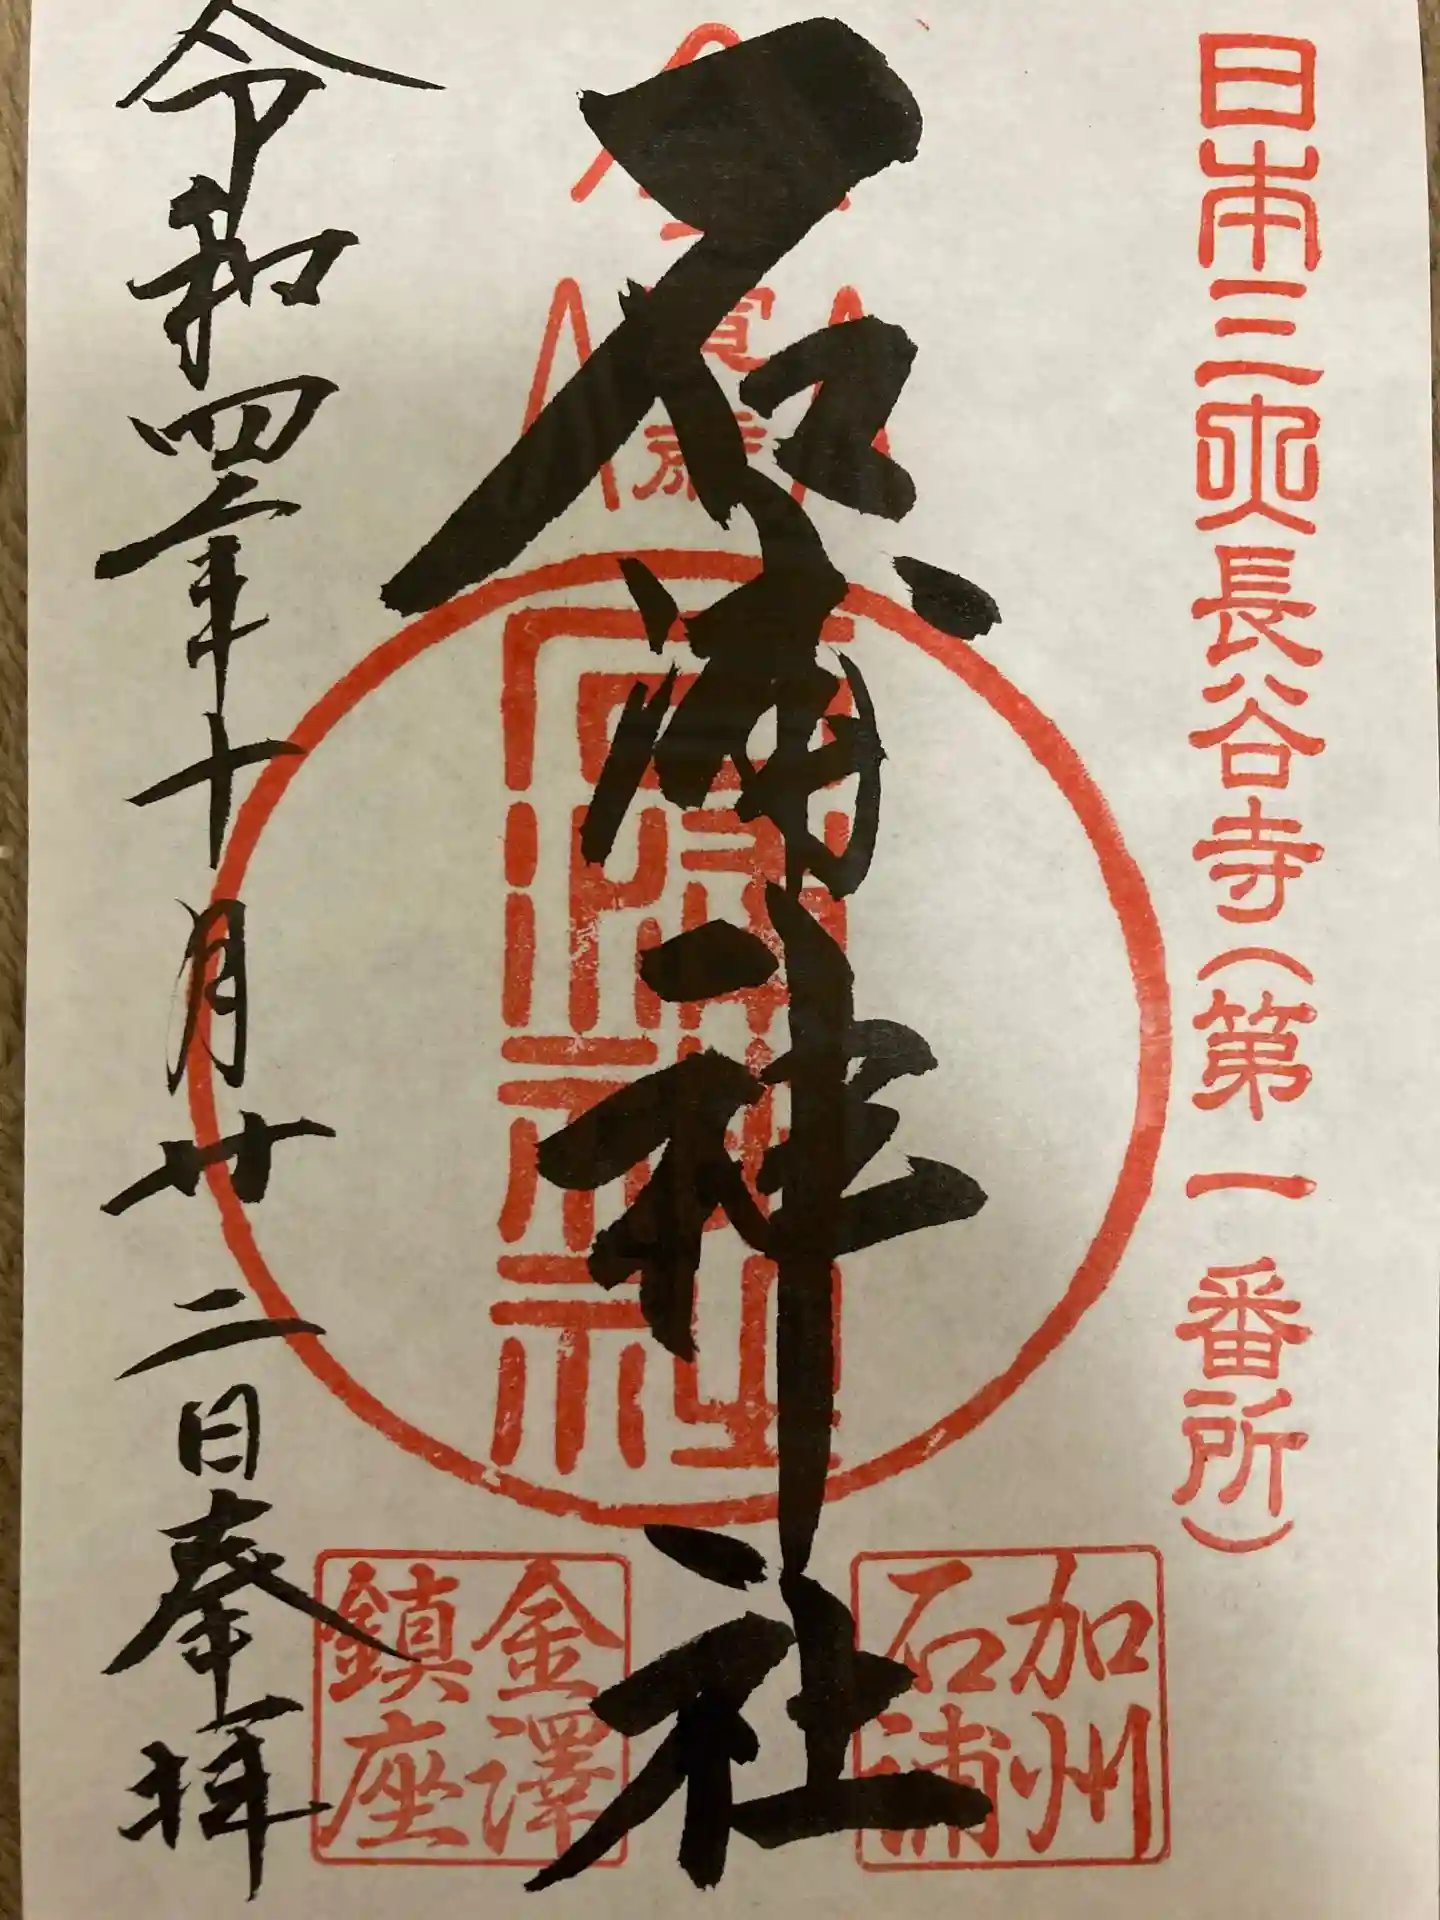 日本三大長谷寺（第一番所）
石浦神社
石浦神社
加州
石浦
金澤
鎮座
令和四年十月廿二日奉拝